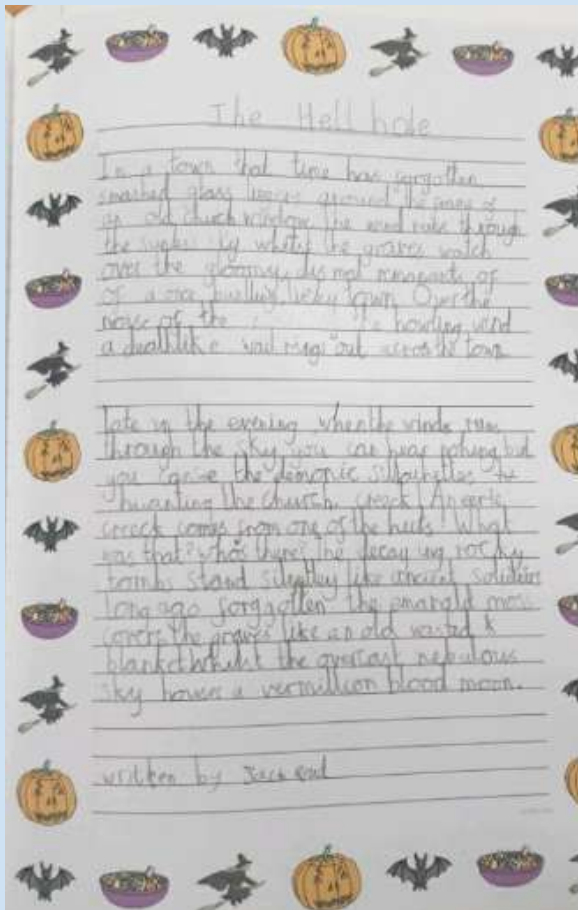 The Hell hole
In a town that time has forgotten
smashed glass around the
an old church window the wind through
the sky the graves watch
over the gloomy, dismal remanants of
of a once town Over the
noise of the howling wind
a deathlike wail rings out across the town
late in the evening when the winds
through the sky you can hear nothing but
you the demonic
the church creeck! An eerie
creeck comes from one of the What
was that? who's there? the decaying rocky
tombs stand like ancient
long ago forggotten the emarald moss
covers the graves like an old wasted
blanket whilst the overcast nebulous
sky houses a vermillion blood moon.
written by Jack